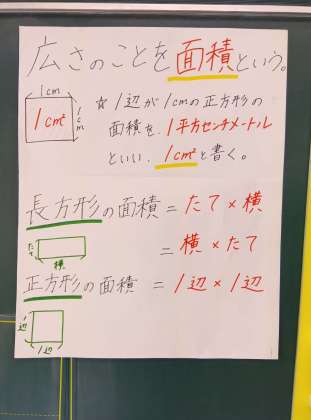 広さのことを面積という。
1cm
1cm²
1cm
☆1辺が1cmの正方形の
面積を、1平方センチメートル
といい、1cm²と書く。
長方形の面積=たて×横
たて
横
=横×たて
正方形の面積=1辺×1辺
1辺
1辺